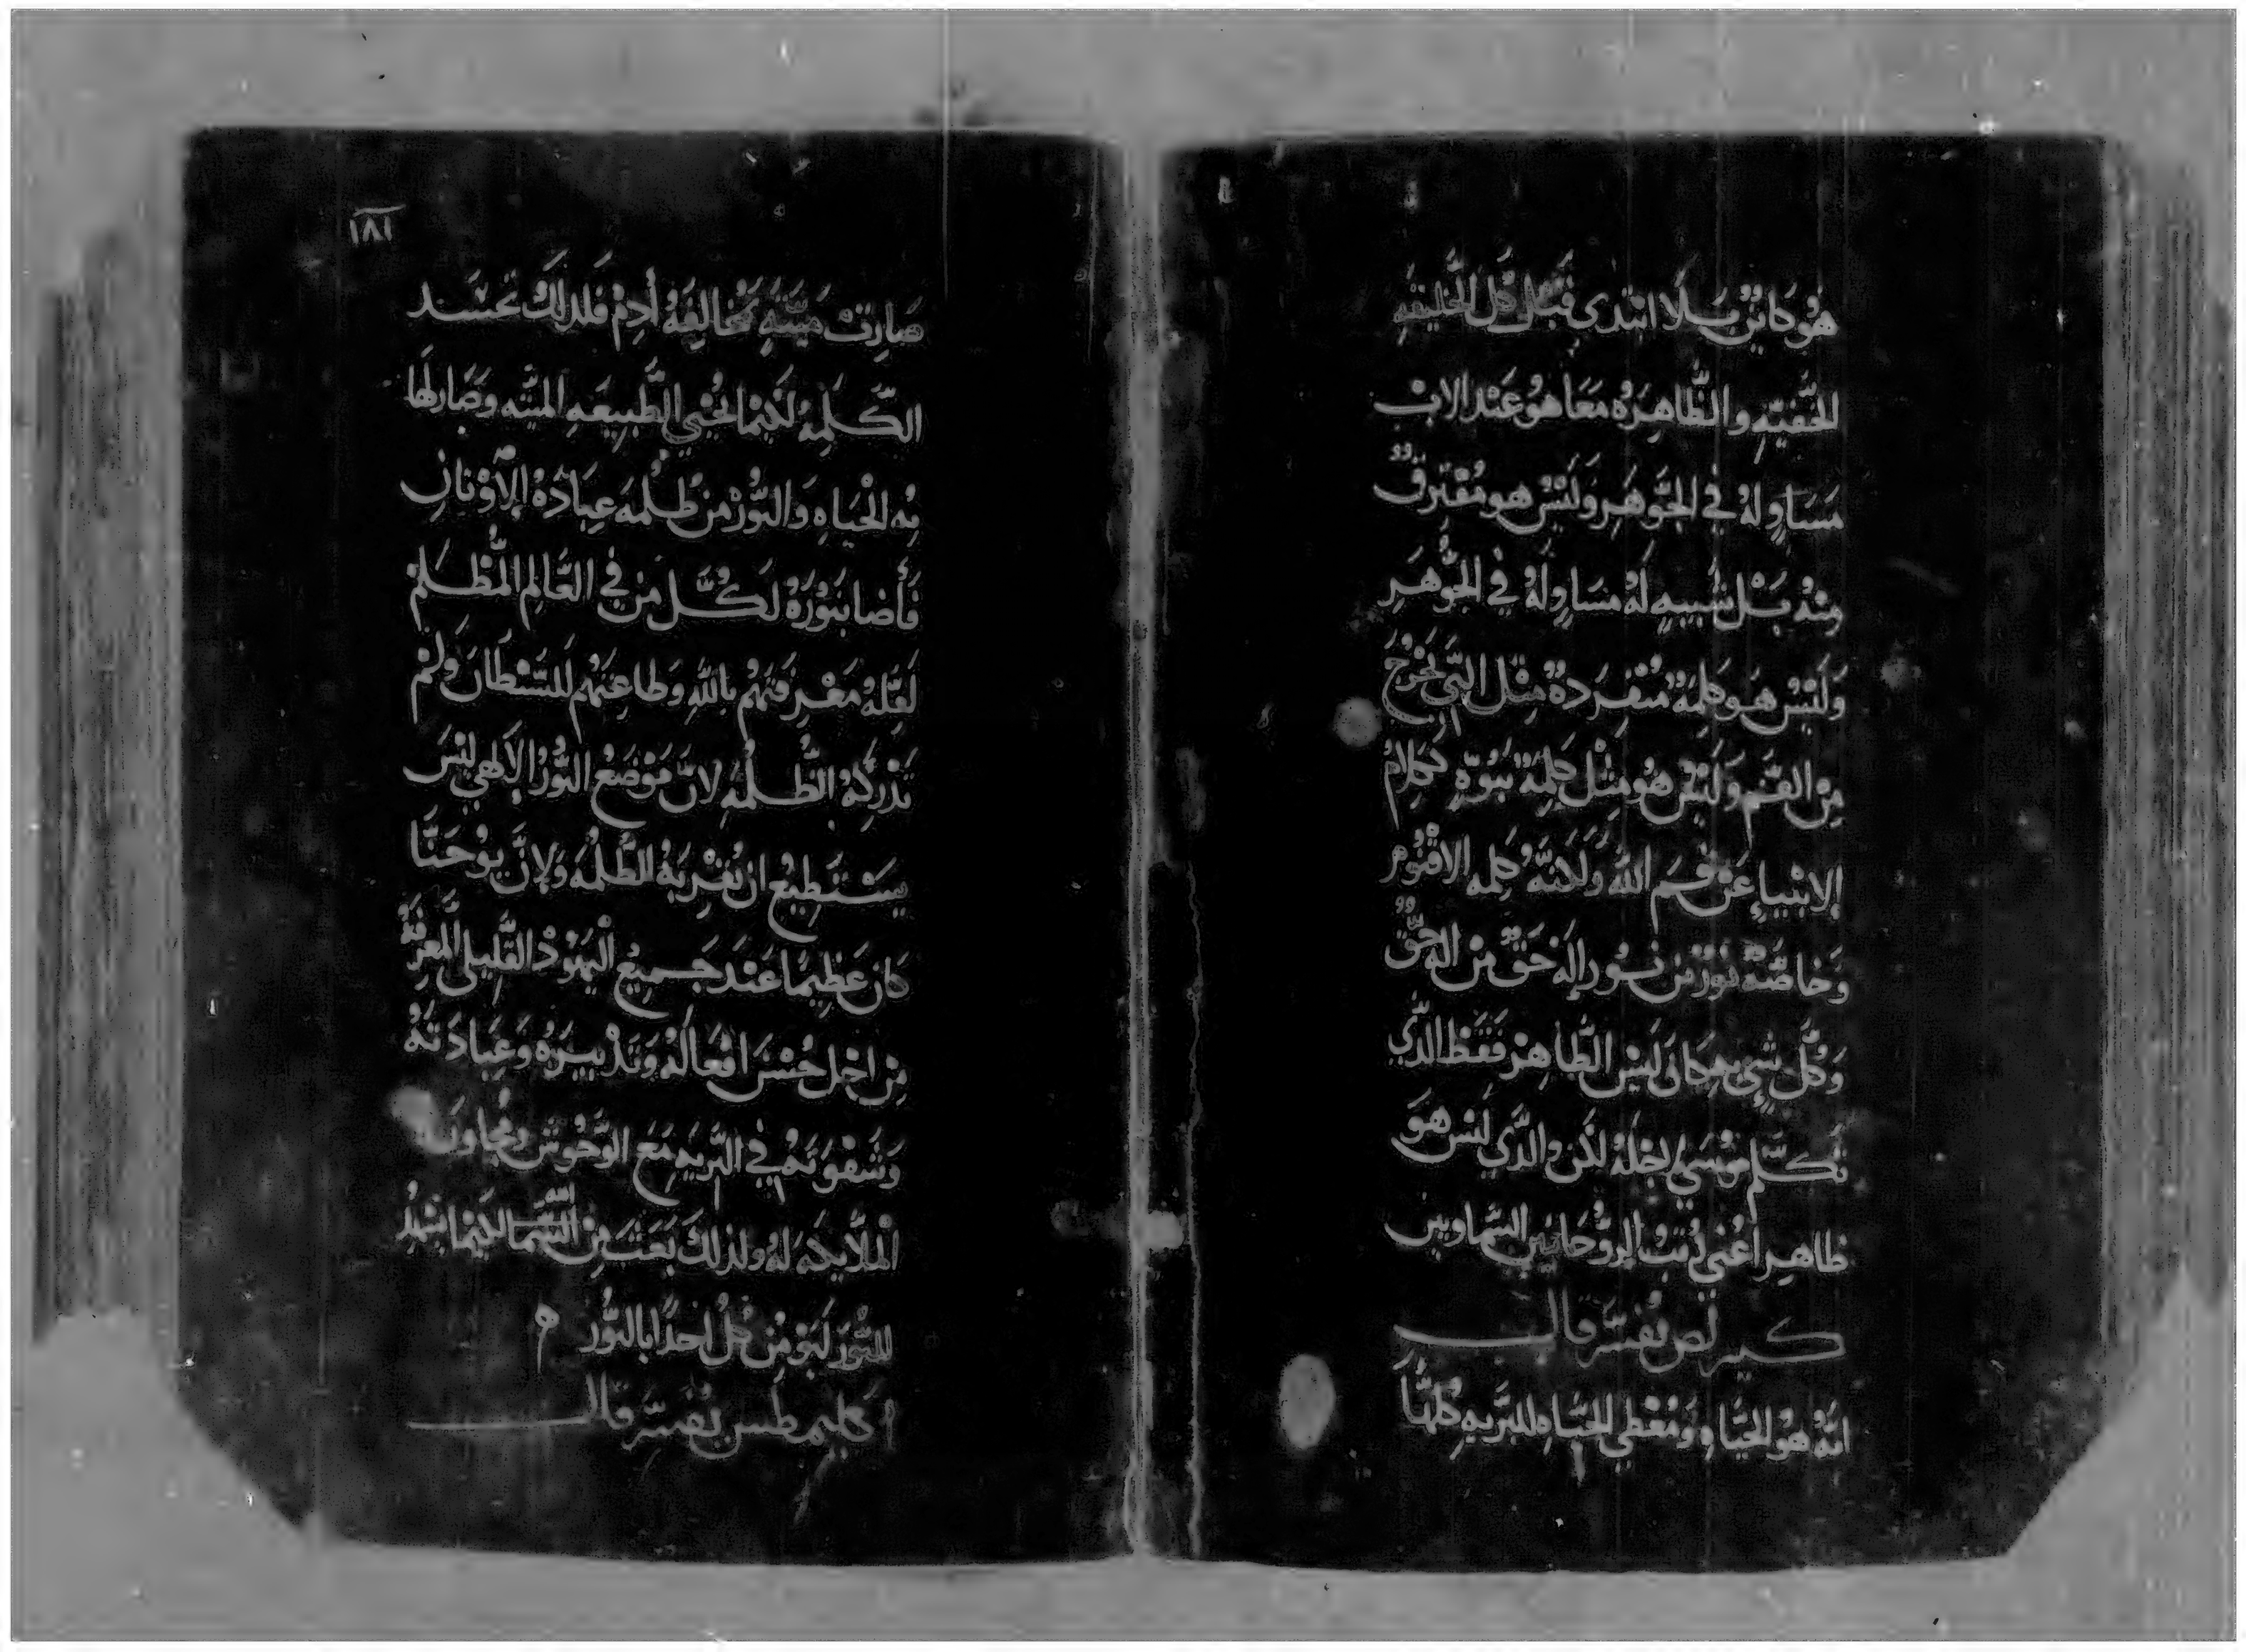 هُو كايٌن بلا ابتدى قبل كل الخليقه
الخفيّه والظّاهِرَهُ مَعَا هُو عَند الاب
مَسَاوٍ لهُ في الجَّوهَر وَلَيْسَ هو مُفترِقٌ
مِنْهُ بَل شَبيهٍ لَهُ مسَاوٍ لَهُ في الجَّوهَرِ
وَلَيْسَ هَو كلِمَةٌ مُنفِرَدةٌ مِثل التَي تَخرُجَ
مِنَ الفَم وَلَيْسَ هُو مِثل كلِمَةٌ نبُوّهٍ ككلامُ
الانبياءِ عَن فم الله وَلاكنّهُ كلِمه الاقنُوم
وَخاصَّةٌ نورٌ من نور إلَه حَقٌ مِن اله حَقٌ
وَكُل شي بهِ كان لَيْسَ الظّاهِر فقَط الدَّي
تَكلّم مُوسَي لاجلهُ لكن والدَّي لَيْس هَو
ظاهِر اعْني رُتبُ الروُّحَانيين السَّماويين
كيرلص يُفسّر قال
انهُ هُو الحَيَاه وَمُعْطي الحَيَاهِ للبَريهِ كُلهَا
١٨١
صَارتْ مَيتَهٍ بمُخالفَهُ أدمْ فلدلكَ تجسَد
الكَلِمَهُ لكَيمَا يُحْيي الطَّبيعَهِ الميته وَصَار لهَا
بهِ الحَيَاهِ وَالنُّورْ مِن ظُلمَه عِبَادَهُ الأَوْتانِ
فَأضا بنورَهُ لَكُلّ مَن في العَالمِ المُظلم
لقِلهُ مَعْرِفتهُم باللهِ وَطاعتهُم للشَيْطان وَلمْ
تَدْركهُ الظُّلمَهُ لانّ مَوْضعُ النُّورْ الالهي لَيْسَ
يَسْتَطِيعُ ان تُقرِبهُ الظُّلمَهُ وَلانَّ يوُحَنَّا
كان عَظِيمًا عَند جَميعُ اليَهُودْ القَليلي المَعرِفَهُ
مِن اجل حُسْن افعَالهُ وَتدْبيرَهُ وَعِبَادَتهُ
وَشَقوَتهُ في البَريهِ مَعَ الوَحُوش وَمُجاوبَهُ
الملايكه لهُ ولذلكَ بَعَثَ الله مِن السَّمَا لكيمَا يشهدُ
للنُّور ليومِن كُل احدًا بالنُّور
اكليمطس يُفسّر قال